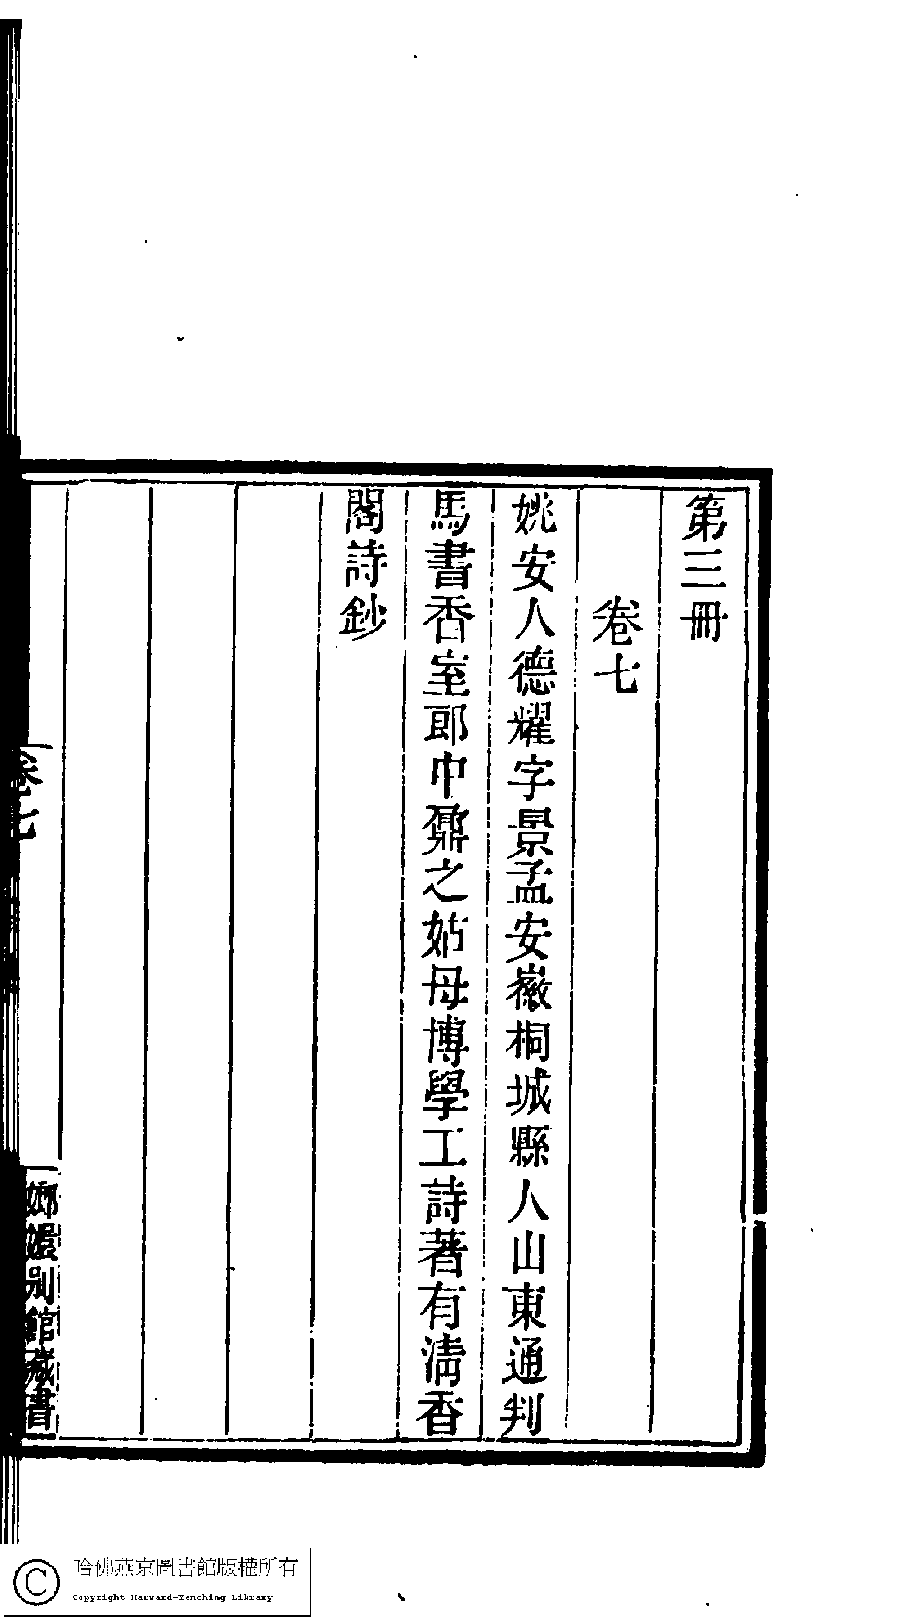 第三冊
卷七
姚安人德耀字景孟安徽桐城縣人山東通判
馬書香室郎中鼐之姑母博學工詩著有清香
閣詩鈔
卷七
嫏嬛別館藏書
哈佛燕京圖書館版權所有
Copyright Harvard-Yenching Library